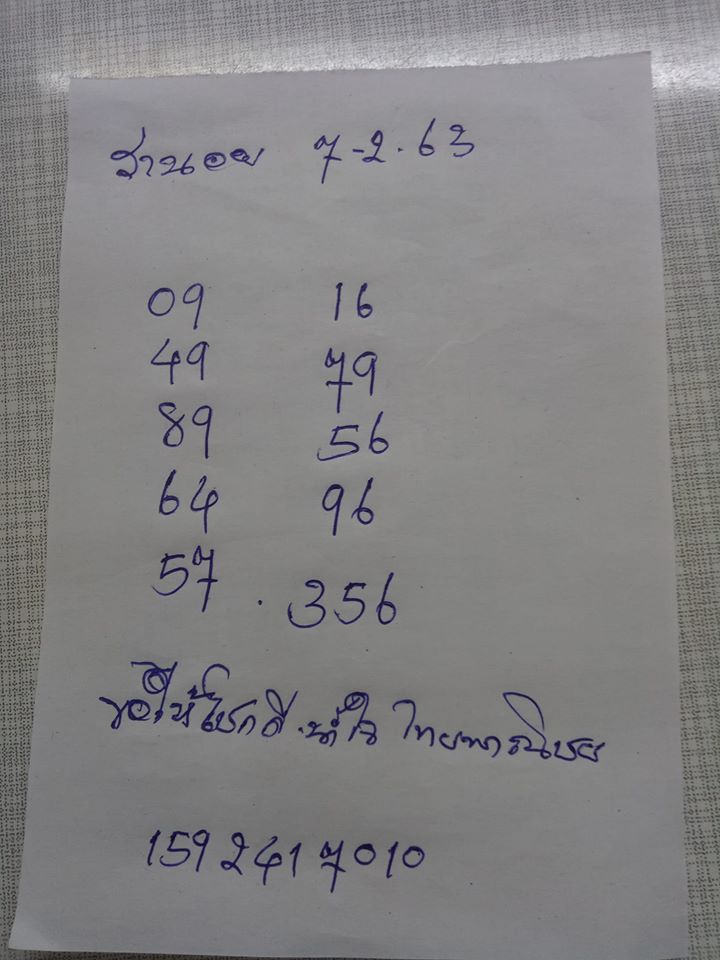 ฮานอย 7-2.63
09 16
49 79
89 56
64 96
57 . 356
ขอให้โชคดี.น้ำใจ ไทยพาณิชย
1592417010